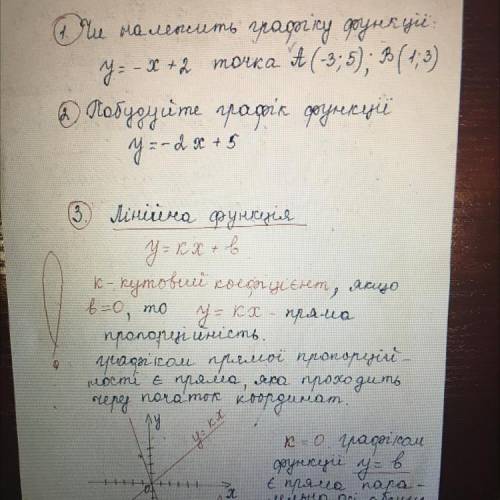 1. Чи належить графіку функції:
y = -x + 2 точка A(-3; 5); B(1; 3)
2. Побудуйте графік функції
y = -2x + 5
3. Лінійна функція
y = kx + b
k - кутовий коефіцієнт, якщо
b=0, то y = kx - пряма
пропорційність.
Графіком прямої пропорцій-
ності є пряма, яка проходить
через початок координат.
y
y=kx
x
0
k = 0. графіком
функції y = b
є пряма пара-